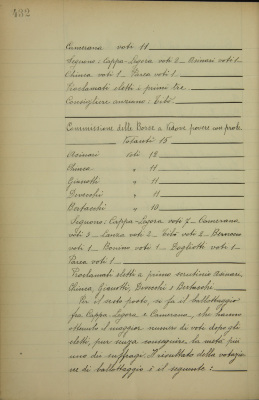 432
Camerana voti 11
Seguono: Cappa-Legora voti 8 - Asinari voti 6 -
Chiusa voti 1 - Parea voti 1.
Proclamati eletti i primi tre.
Consigliere anziano: Tito
Commissione delle Borse a favore povere con prole
Votanti 15
Asinari voti 12
Chiusa " 11
Gianotti " 11
Dovecchi " 11
Bertacchi " 10
Seguono: Cappa-Legora voti 7 - Camerana
voti 3 - Lanza voti 2 - Tito voti 2 -
voti 1 - Bonino voti 1 - Dogliotti voti 1 -
Parea voti 1
Proclamati eletti a primo scrutinio Asinari,
Chiusa, Gianotti, Dovecchi e Bertacchi
Per il sesto posto, si fa il ballottaggio
fra Cappa-Legora e Camerana, che hanno
ottenuto il maggior numero di voti dopo gli
eletti, pur senza conseguire la metà più
uno dei suffragi. Il risultato della votazio
ne di ballottaggio è il seguente: